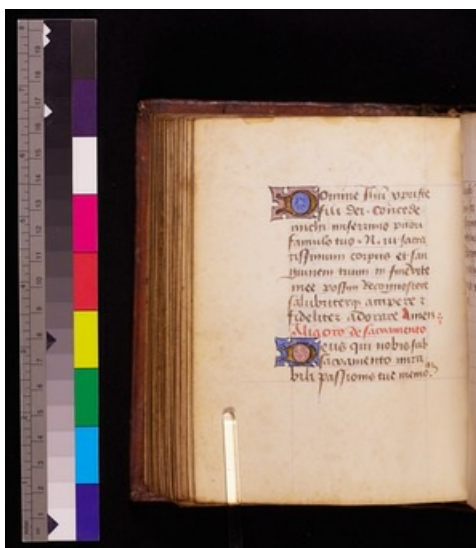 Domine ihu xpriste
fili dei concede
michi miserrimo puou
famulo tuo . N . ut sacra
tissimum corpus et san
guinem tuum in fine vite
mee possim recognoscere
salubriterq accipere z
fideliter adorare Amen
Alia oro de sacramento
Deus qui nobis sub
sacramento mira
bili passionis tue memo